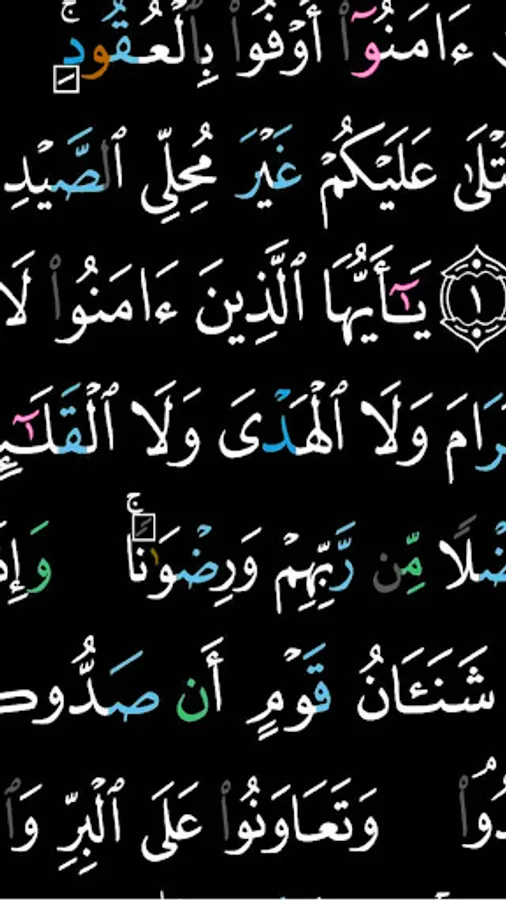 ءَامَنُوٓا۟ أَوْفُوا۟ بِٱلْعُقُودِ ۚ
عَلَيْكُمْ غَيْرَ مُحِلِّى ٱلصَّيْدِ
١ يَـٰٓأَيُّهَا ٱلَّذِينَ ءَامَنُوا۟ لَا
وَلَا ٱلْهَدْىَ وَلَا
مِّن رَّبِّهِمْ وَرِضْوَٰنًا ۚ
شَنَـَٔانُ قَوْمٍ أَن
وَتَعَاوَنُوا۟ عَلَى ٱلْبِرِّ